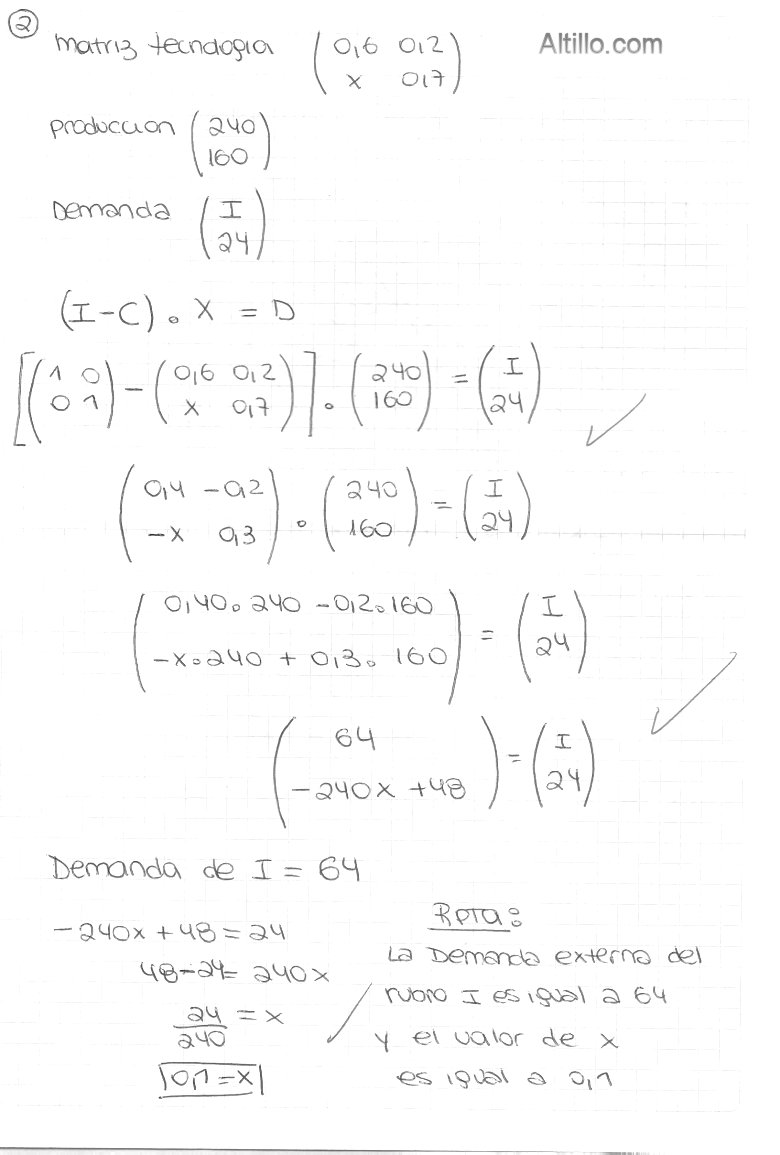 ②
matriz tecnologia (0,6 0,2
x 0,7)
Altillo.com
produccion (240
160)
Demanda (I
24)
(I-C) . X = D
[(1 0
0 1) - (0,6 0,2
x 0,7)] . (240
160) = (I
24)
(0,4 -0,2
-x 0,3) . (240
160) = (I
24)
(0,40.240 -0,2.160
-x.240 + 0,3. 160) = (I
24)
(64
-240x +48) = (I
24)
Demanda de I = 64
-240x + 48 = 24
48-24= 240x
24/240 = x
0,1=x
Rpta:
La Demanda externa del
rubro I es igual a 64
y el valor de x
es igual a 0,1